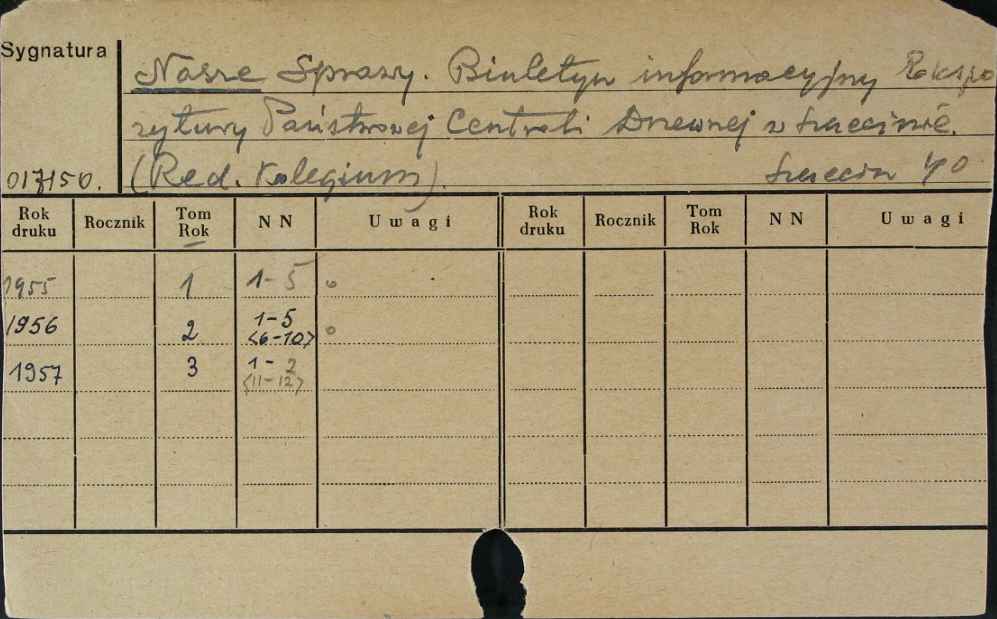 Sygnatura
Nasze Sprawy. Biuletyn informacyjny Ekspo
zytury Państwowej Centrali Drzewnej w Szczecinie.
017150. (Red. Kolegium). Szczecin 4°
Rok druku Rocznik Tom Rok NN Uwagi Rok druku Rocznik Tom Rok NN Uwagi
1955 1 1-5 o
1956 2 1-5 o
<6-10>
1957 3 1-2
<11-12>